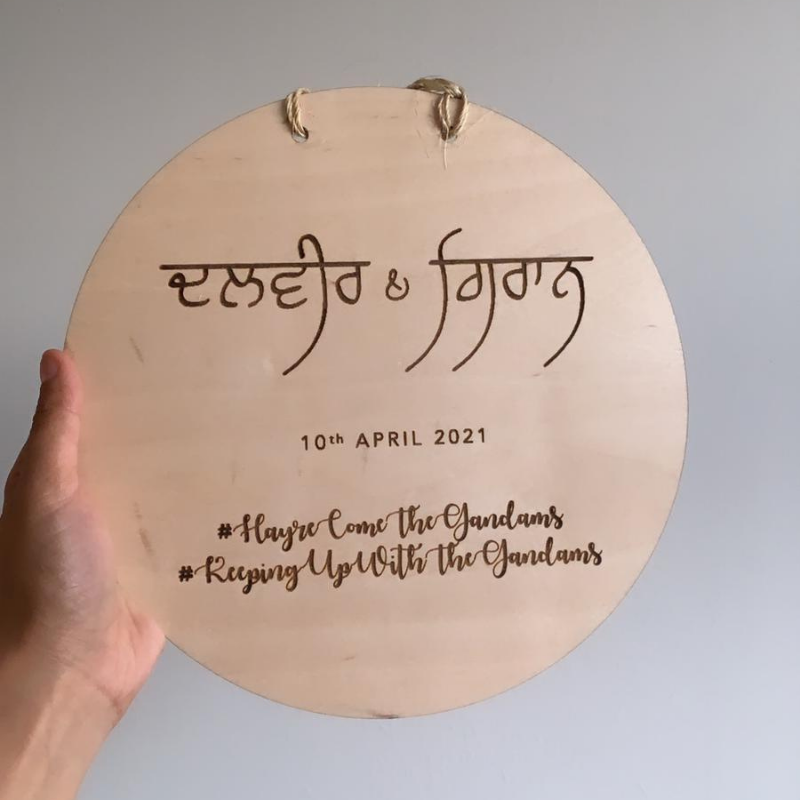 ਦਲਵੀਰ & ਗਿਰਾਨ
10th APRIL 2021
#HayreComeTheGandams
#KeepingUpWithTheGandams